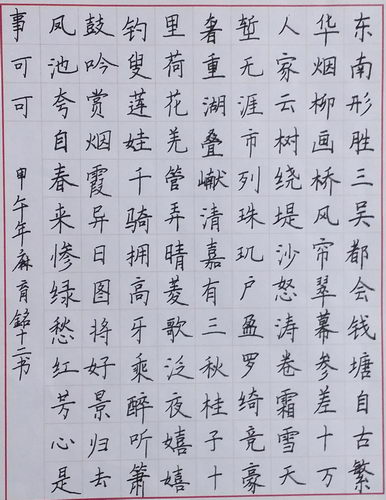 东南形胜三吴都会钱塘自古繁
华烟柳画桥风帘翠幕参差十万
人家云树绕堤沙怒涛卷霜雪天
堑无涯市列珠玑户盈罗绮竞豪
奢重湖叠𪩘清嘉有三秋桂子十
里荷花羌管弄晴菱歌泛夜嬉嬉
钓叟莲娃千骑拥高牙乘醉听箫
鼓吟赏烟霞异日图将好景归去
凤池夸自春来惨绿愁红芳心是
事可可 甲午年麻育銘十二书